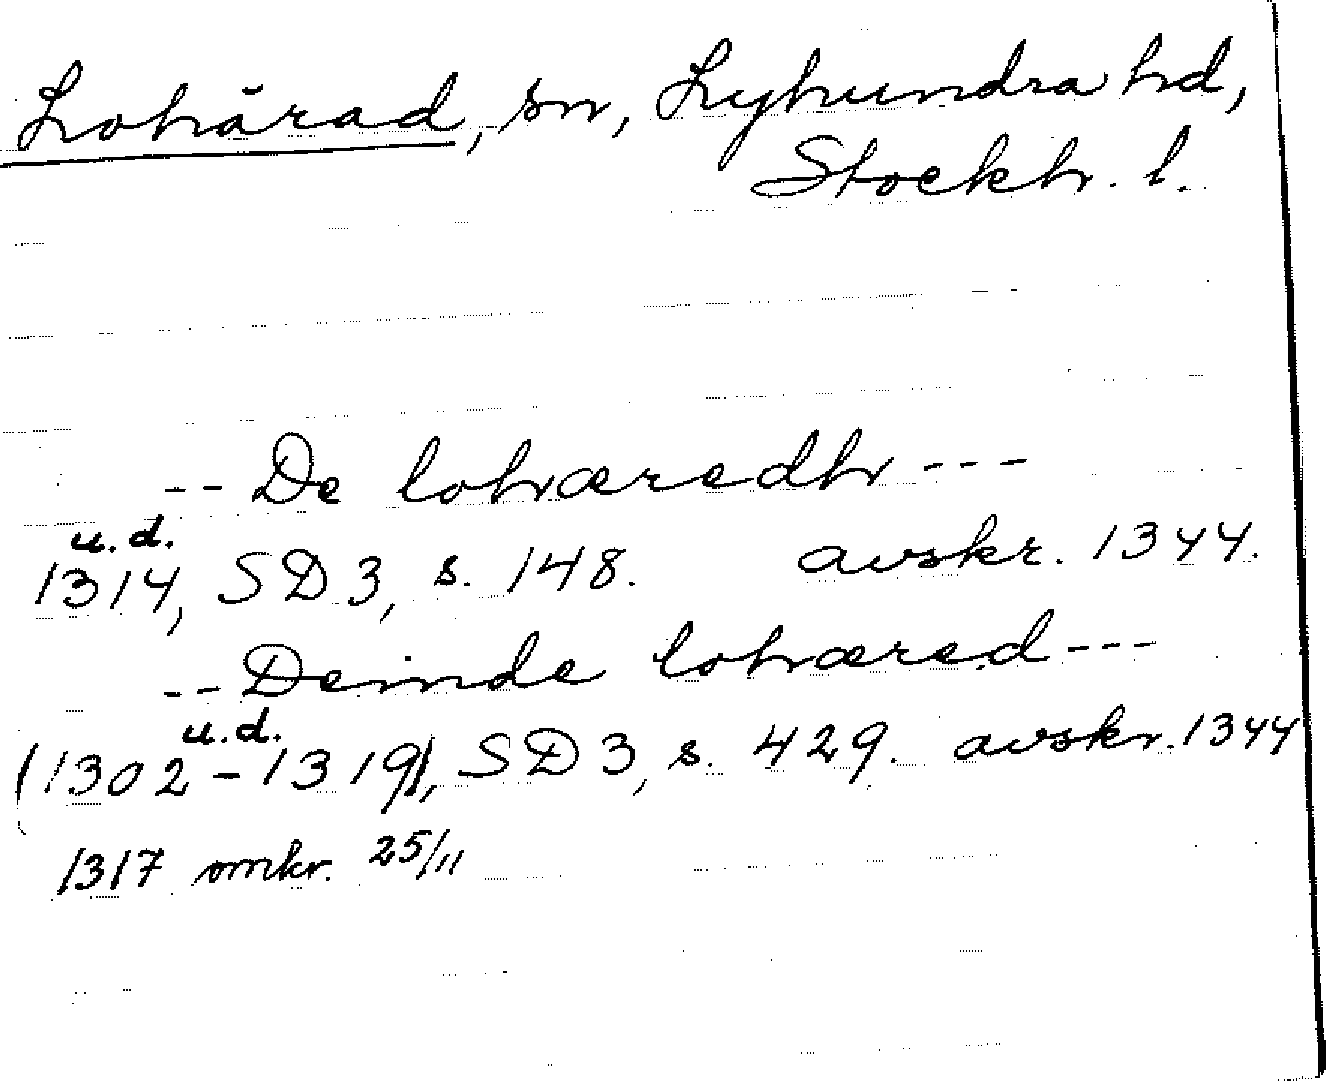 Lohärad, sn, Lyhundra hd,
Stockh. l.
-- De lohæredh ---
u.d.
1314, SD 3, s. 148. avskr. 1344.
-- Deinde lohæred ---
u.d.
(1302-1319), SD 3, s. 429. avskr. 1344
1317 omkr. 25/11